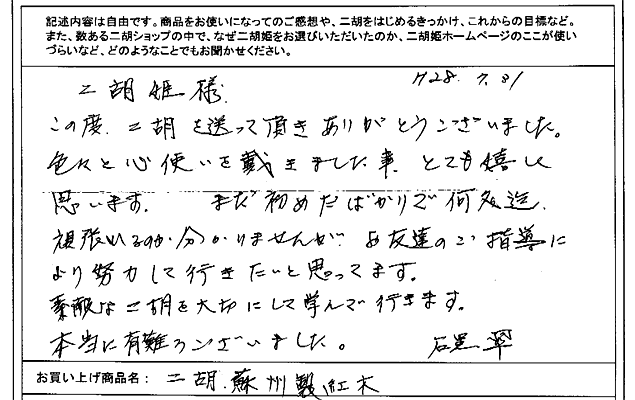 記述内容は自由です。商品をお使いになってのご感想や、二胡をはじめるきっかけ、これからの目標など。
また、数ある二胡ショップの中で、なぜ二胡姫をお選びいただいたのか、二胡姫ホームページのここが使い
づらいなど、どのようなことでもお聞かせください。
二胡姫様
H28.7.31
この度、二胡を送って頂きありがとうございました。
色々と心使いを戴きました事、とても嬉しく
思います。 まだ初めたばかりで何処迄、
頑張れるのか分かりませんが、お友達のご指導に
より努力して行きたいと思ってます。
素敵な二胡を大切にして学んで行きます。
本当に有難うございました。
お買い上げ商品名： 二胡 蘇州製 紅木